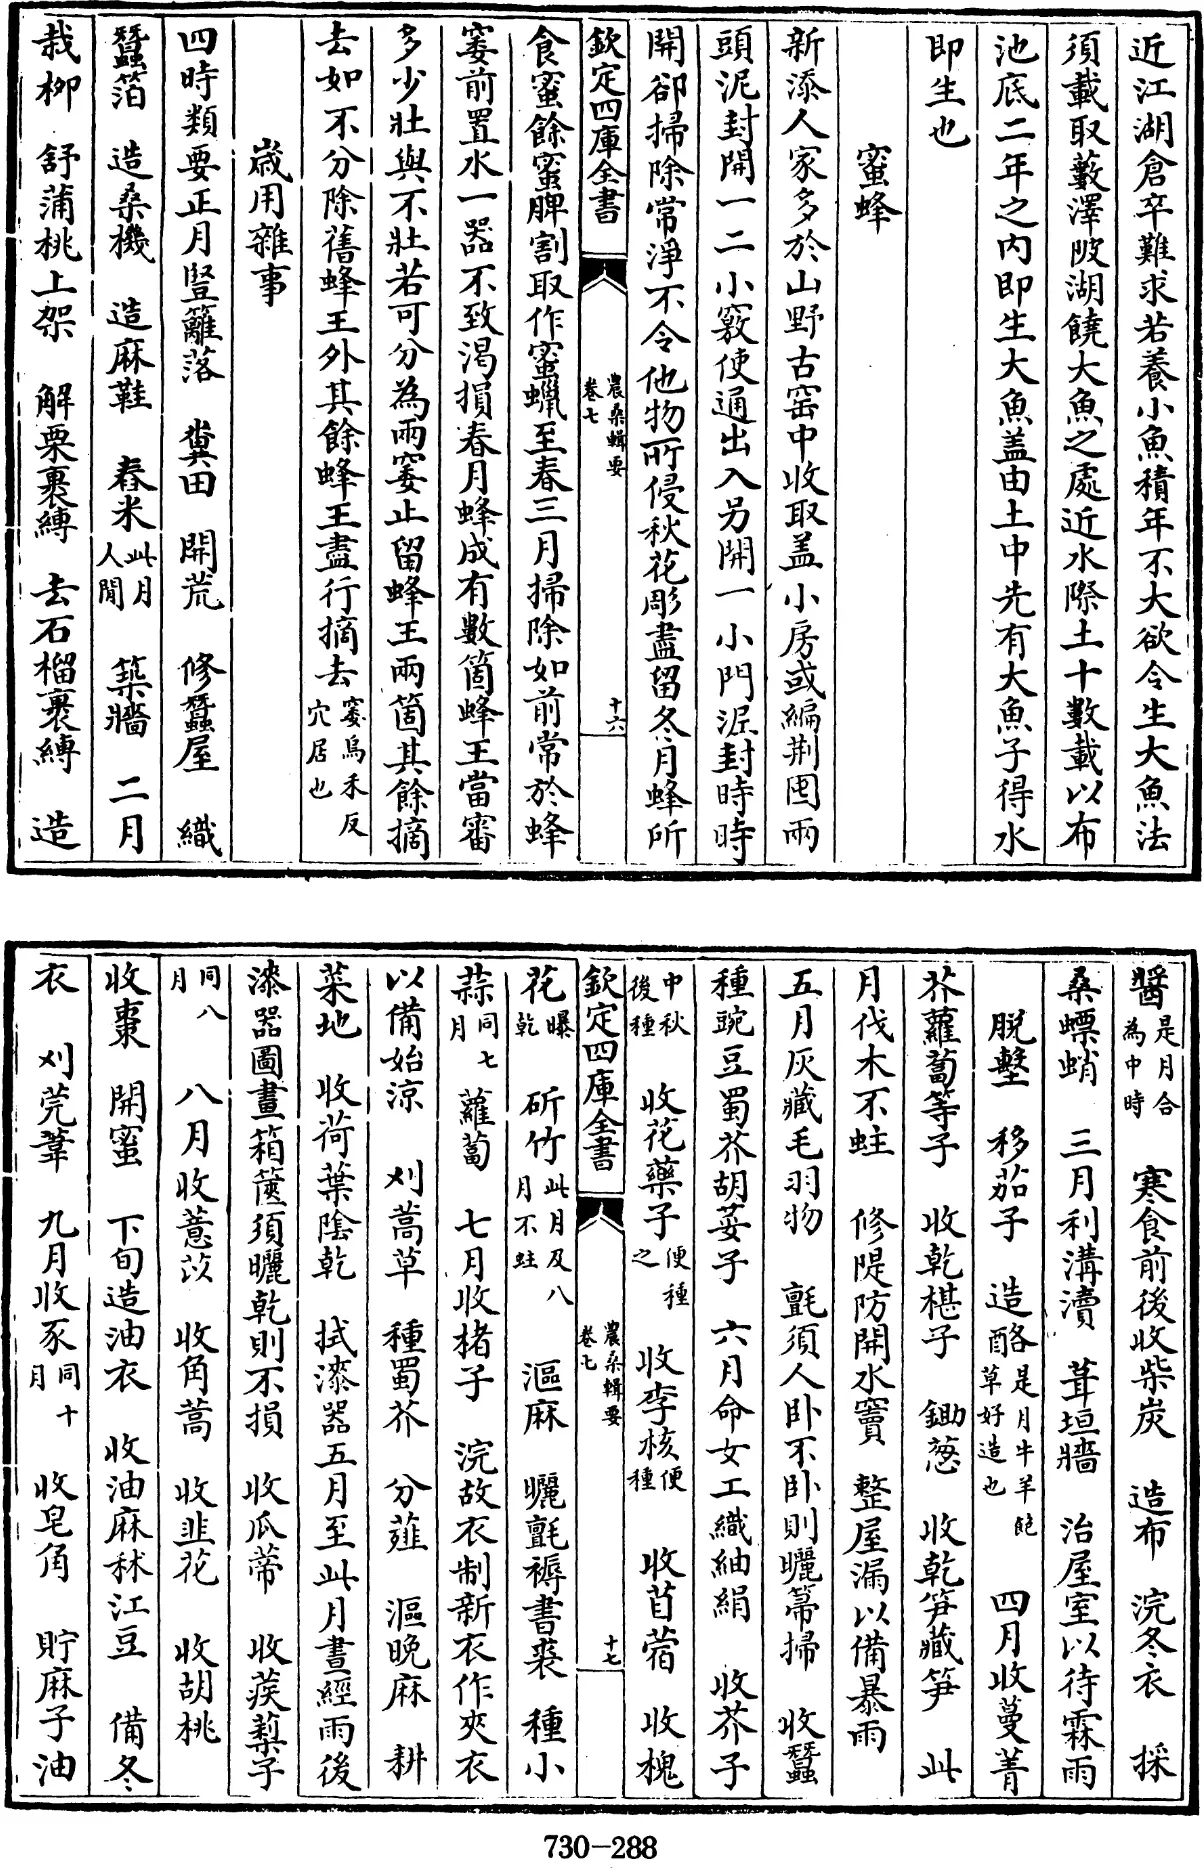 近江湖倉卒難求若養小魚積年不大欲令生大魚法
須載取藪澤陂湖饒大魚之處近水際土十數載以布
池底二年之內即生大魚蓋由土中先有大魚子得水
即生也
蜜蜂
新添人家多於山野古窑中收取盖小房或編荆囤兩
頭泥封開一二小竅使通出入另開一小門泥封時時
開卻掃除常淨不令他物所侵秋花彫盡留冬月蜂所
欽定四庫全書
農桑輯要
卷七
十六
食蜜餘蜜脾割取作蜜蠟至春三月掃除如前常於蜂
窠前置水一器不致渴損春月蜂成有數箇蜂王當審
多少壯與不壯若可分為兩窠止留蜂王兩箇其餘摘
去如不分除舊蜂王外其餘蜂王盡行摘去窠烏禾反穴居也
歲用雜事
四時類要正月豎籬落 糞田 開荒 修蠶屋 織
蠶箔 造桑機 造麻鞋 舂米此月人閒 築牆 二月
栽柳 舒蒲桃上架 解栗裹縛 去石榴裹縛 造
醬是月合為中時 寒食前後收柴炭 造布 浣冬衣 採
桑螵蛸 三月利溝瀆 葺垣牆 治屋室以待霖雨
脫墼 移茄子 造酪是月牛羊飽草好造也 四月收蔓菁
芥蘿蔔等子 收乾椹子 鋤葱 收乾笋藏笋 此
月伐木不蛀 修隄防開水竇 整屋漏以備暴雨
五月灰藏毛羽物 氈須人卧不卧則曬篅掃 收蠶
種豌豆蜀芥胡荽子 六月命女工織紬絹 收芥子
中秋後種 收花藥子便種之 收李核便種 收苜蓿 收槐
欽定四庫全書
農桑輯要
卷七
十七
花曝乾 斫竹此月及八月不蛀 漚麻 曬氈褥書裘 種小
蒜同七月 蘿蔔 七月收楮子 浣故衣制新衣作夾衣
以備始涼 刈蒿草 種蜀芥 分薤 漚晚麻 耕
菜地 收荷葉陰乾 拭漆器五月至此月晝經雨後
漆器圖畫箱篋須曬乾則不損 收瓜蒂 收蒺蔾子
同八月 八月收薏苡 收角蒿 收韭花 收胡桃
收棗 開蜜 下旬造油衣 收油麻秫江豆 備冬
衣 刈莞葦 九月收豕同十月 收皂角 貯麻子油
730-288